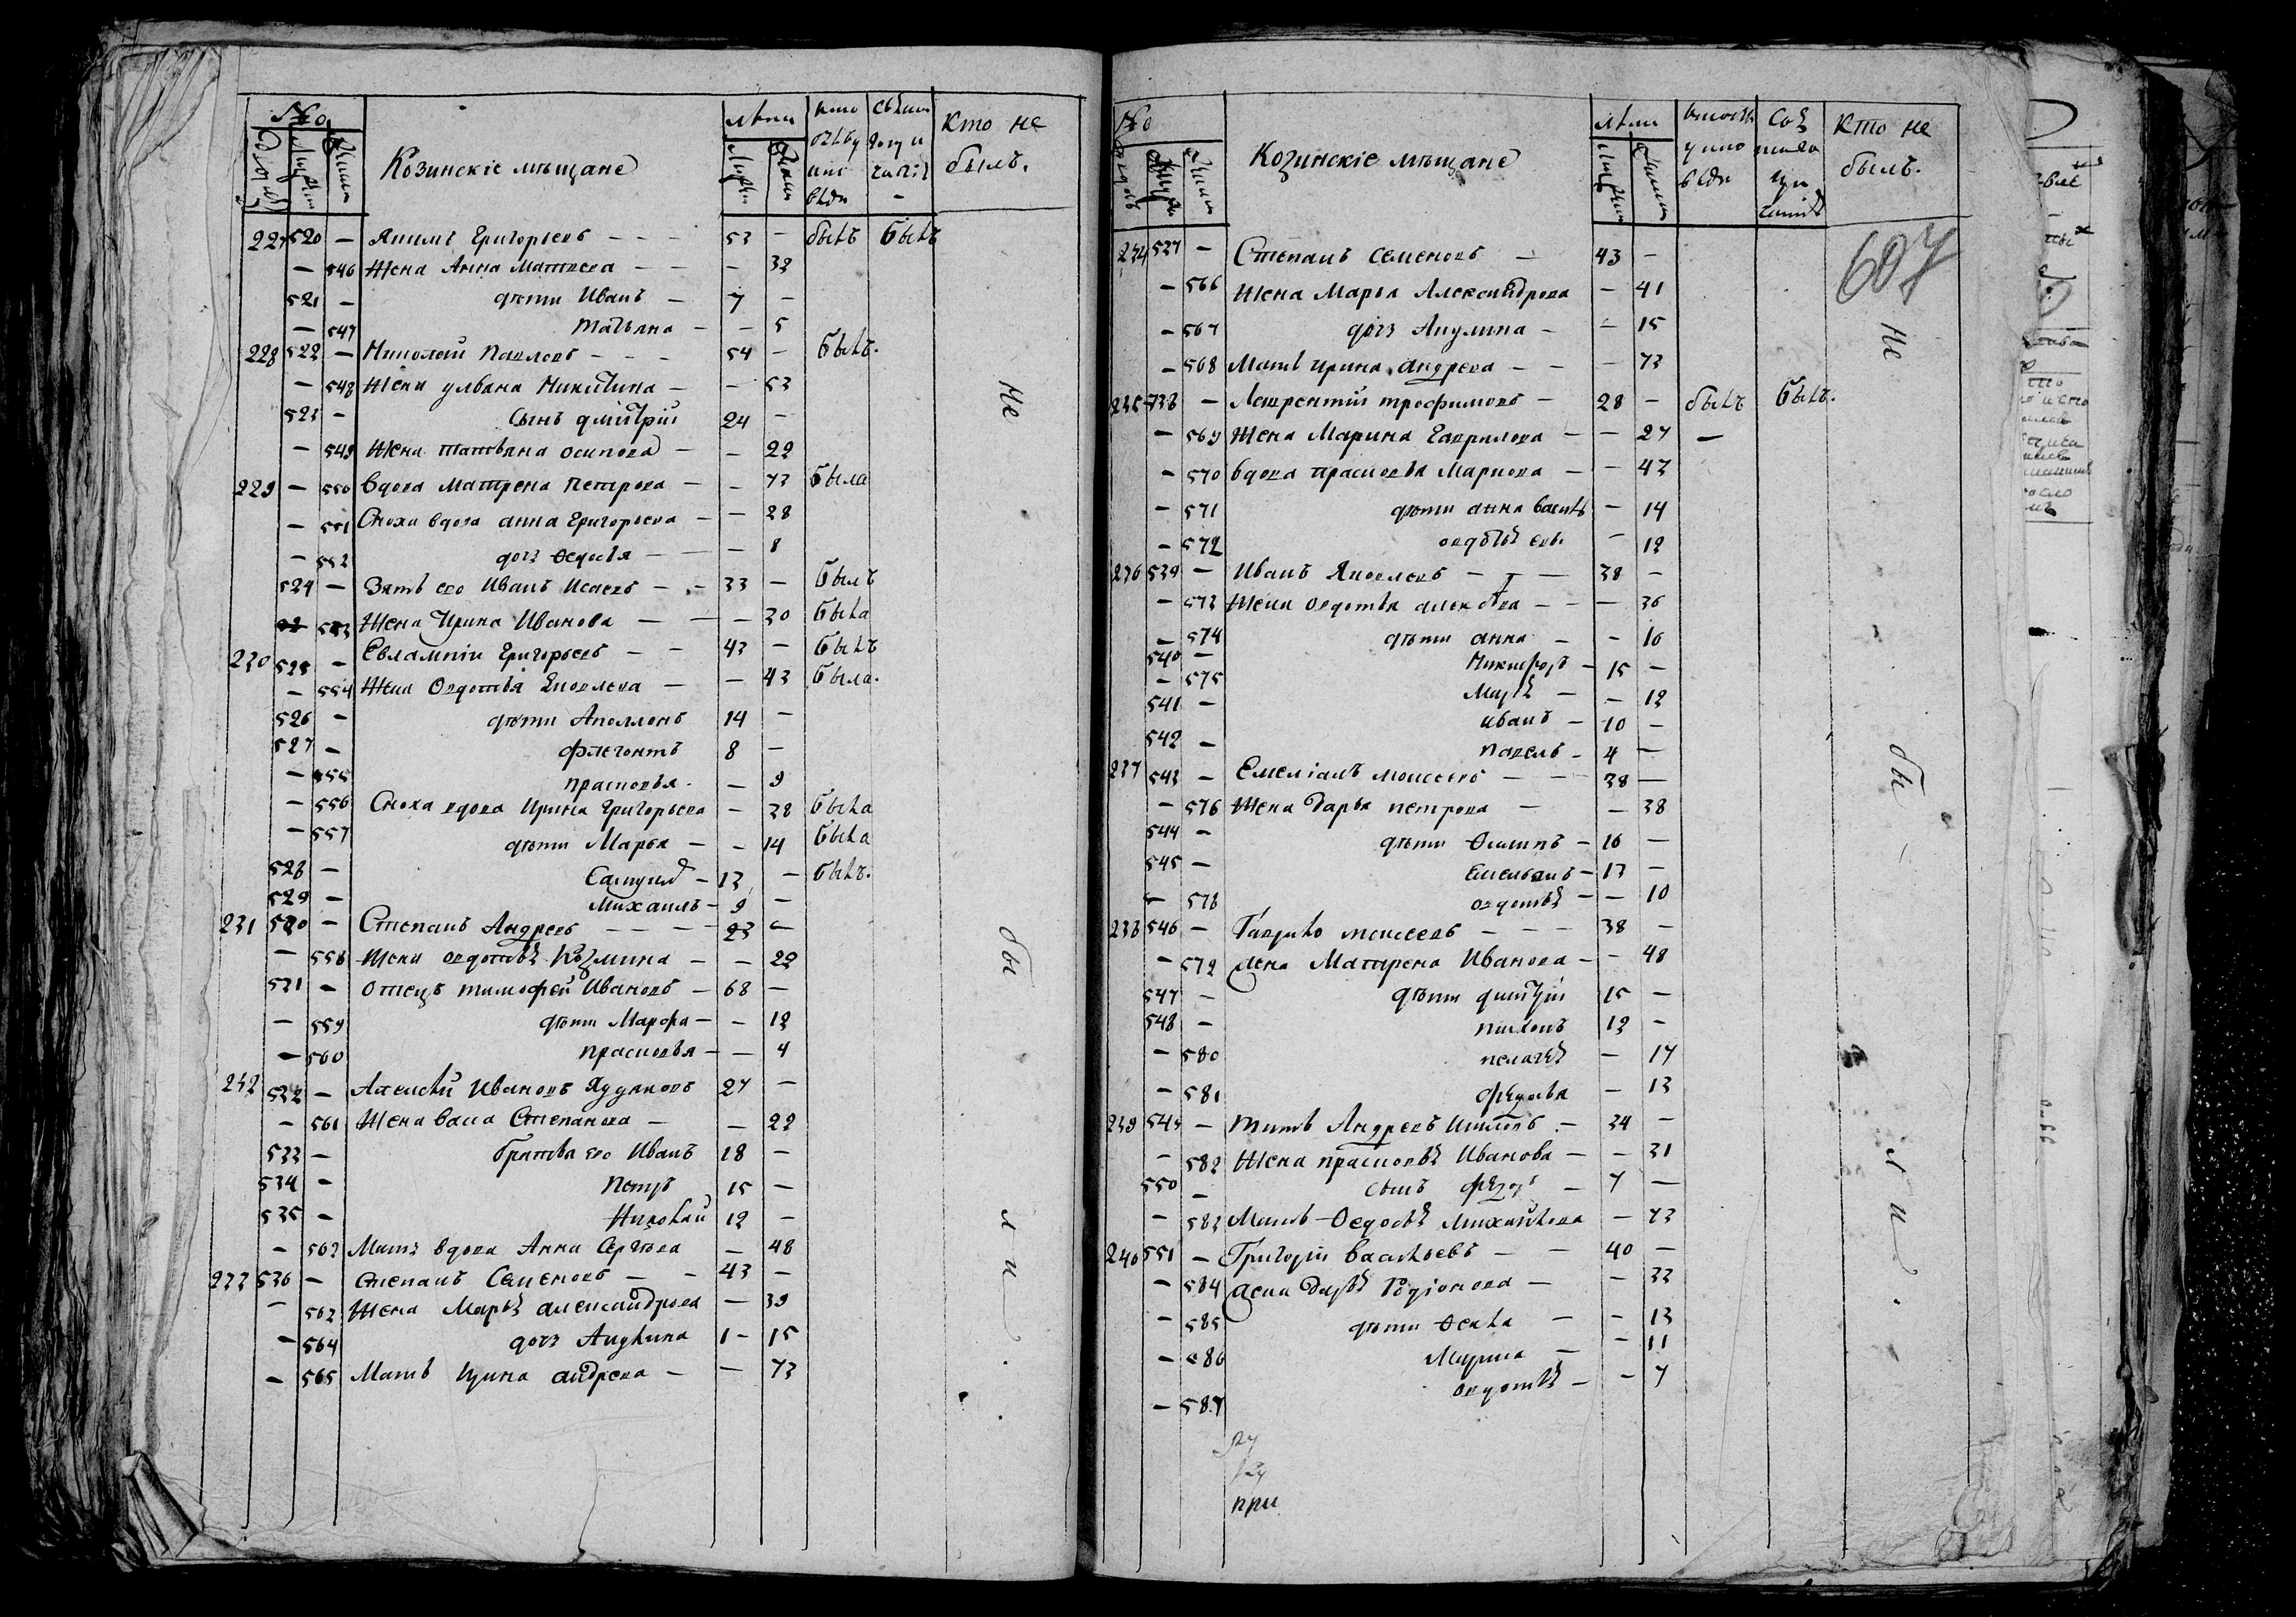 №
Козинскіе мѣщане
лѣты
Кто не былъ.
227 520 — Якимъ Григорьевъ — — — 53 — былъ былъ
— 546 Жена Анна Матвеева — — — 32
521 — дѣти Иванъ — 7 —
— 547 татьяна — — 5
228 522 — Николай Павловъ — — — 54 — былъ.
— 548 Жена ульяна Никитина — — 53
523 — Сынъ дмитрій 24 —
— 549 Жена татьяна осипова — — 22
229 — 550 вдова Матрена Петрова — — 73 была
— 551 Сноха вдова анна Григорьева — — 28
— 552 дочь Ѳедосья — — 8
524 — Зять его Иванъ Исаевъ — — 33 — былъ
553 Жена Ирина Иванова — — 30 была
230 525 — Евлампій Григорьевъ — — 43 — былъ
— 554 Жена Овдотья Яковлева — — 43 была.
526 — дѣти Аполлонъ 14 —
527 — флегонтъ 8 —
— 555 прасковья — 9
— 556 Сноха вдова Ирина Григорьева — 38 была
— 557 дѣти Марья — — 14 была
528 — Самуилъ — 13 — былъ.
529 — Михаилъ — 9 —
231 530 — Степанъ Андреевъ — — — 23 —
— 558 Жена овдотья Козмина — — 22
531 — отецъ тимофей Ивановъ — 68 —
— 559 дѣти Марфа — — 12
— 560 прасковья — — 4
232 532 — Алексѣй Ивановъ Худяковъ 27 —
— 561 Жена васа Степанова — — 22
533 — братья его Иванъ 18 —
534 — Петръ 15 —
535 — Николай 12 —
— 562 Мать вдова Анна Сергѣева — 48
233 536 — степанъ Семеновъ — — 43 —
— 563 Жена Марья александрова — 39
— 564 дочь Акулина 1 — 15
— 565 Мать Ирина андреева — — 73
Не
бы
ли
№
Козинскіе мѣщане
лѣты
Кто не былъ.
607
234 537 — Степанъ семеновъ — 43 —
— 566 Жена Марья Александрова — 41
— 567 дочь Акулина — — 15
— 568 Мать ирина андреева — — — 73
235 538 — Лаврентій трофимовъ — 28 — былъ былъ.
— 569 Жена Марина Гаврилова — — 27 —
— 570 вдова прасковья Маркова — — 43
— 571 дѣти анна василь — 14
— 572 — 12
236 539 — Иванъ Яковлевъ — — — 38 —
— 573 Жена овдотья — — — 36
— 574 дѣти анна — — 16
540 — Никифоръ — 15 —
— 575 Марья — — 12
541 — иванъ — 10 —
542 — павелъ — 4 —
237 543 — Емеліанъ моисеевъ — — 38 —
— 576 Жена Дарья петрова — — 38
544 — дѣти Осипъ — 16 —
545 — Емельянъ — 13 —
— 578 овдотья — — 10
238 546 — Гаврило моисеевъ — — — 38 —
— 579 жена Матрена Иванова — — 48
547 — дѣти дмитрій 15 —
548 — 12 —
— 580 пелагея — 17
— 581 — 13
239 549 — титъ Андреевъ — 34 —
— 582 Жена прасковья Иванова — — 31
550 — сынъ Ѳедоръ — 7 —
— 583 Мать Ѳедосья михайлова — 73
240 551 — Григорій васильевъ — — 40 —
— 584 жена Дарья Родіонова — — 33
— 585 дѣти Ѳекла — — 13
— 586 Марина — — 11
— 587 овдотья — — 7
при
Не
бы
ли